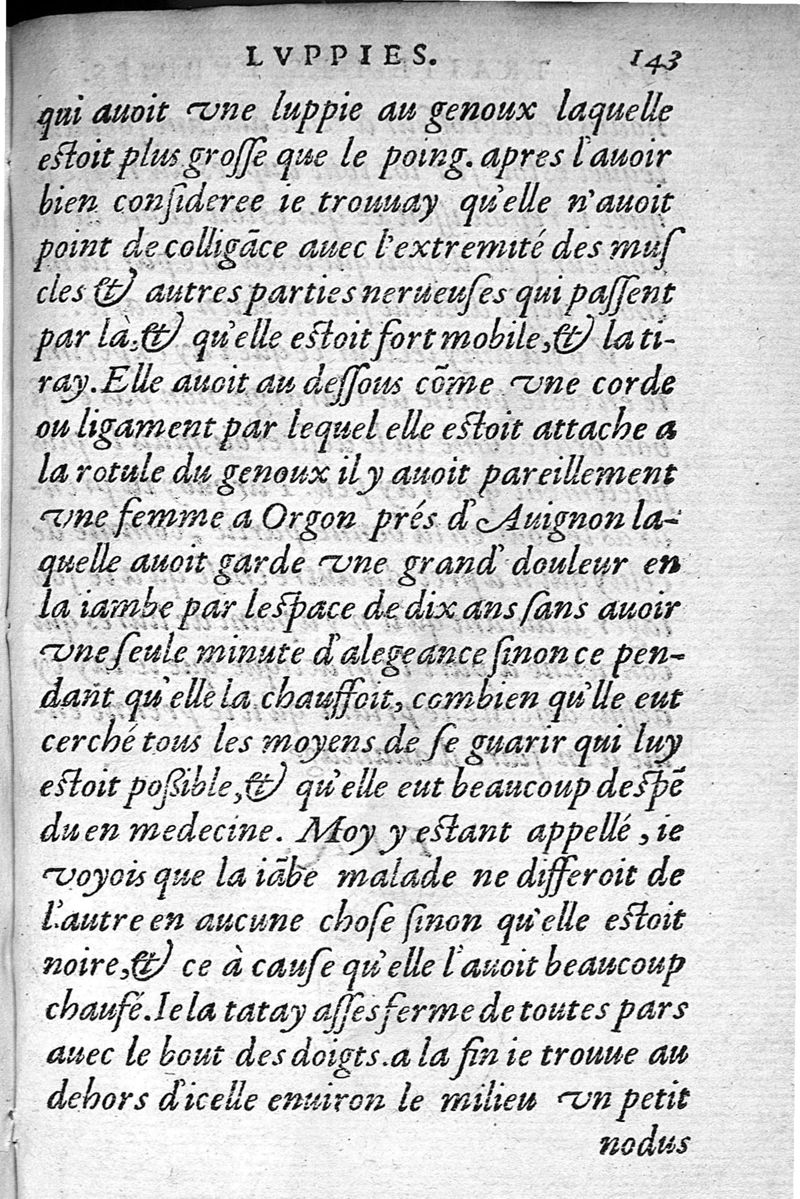 LVPPIES. 143
qui auoit vne luppie au genoux laquelle
eſtoit plus groſſe que le poing. apres l'auoir
bien conſideree ie trouuay qu'elle n'auoit
point de colligāce auec l'extremité des muſ
cles & autres parties nerueuſes qui paſſent
par là, & qu'elle eſtoit fort mobile, & la ti-
ray. Elle auoit au deſſous cōme vne corde
ou ligament par lequel elle eſtoit attache a
la rotule du genoux il y auoit pareillement
vne femme a Orgon prés d'Auignon la-
quelle auoit garde vne grand' douleur en
la iambe par leſpace de dix ans ſans auoir
vne ſeule minute d'alegeance ſinon ce pen-
dant qu'elle la chauffoit, combien qu'lle eut
cerché tous les moyens de ſe guarir qui luy
eſtoit poßible, & qu'elle eut beaucoup deſpē
du en medecine. Moy y eſtant appellé, ie
voyois que la iābe malade ne differoit de
l'autre en aucune choſe ſinon qu'elle eſtoit
noire, & ce à cauſe qu'elle l'auoit beaucoup
chaufé. Ie la tatay aſſes ferme de toutes pars
auec le bout des doigts. a la fin ie trouue au
dehors d'icelle enuiron le milieu vn petit
nodus